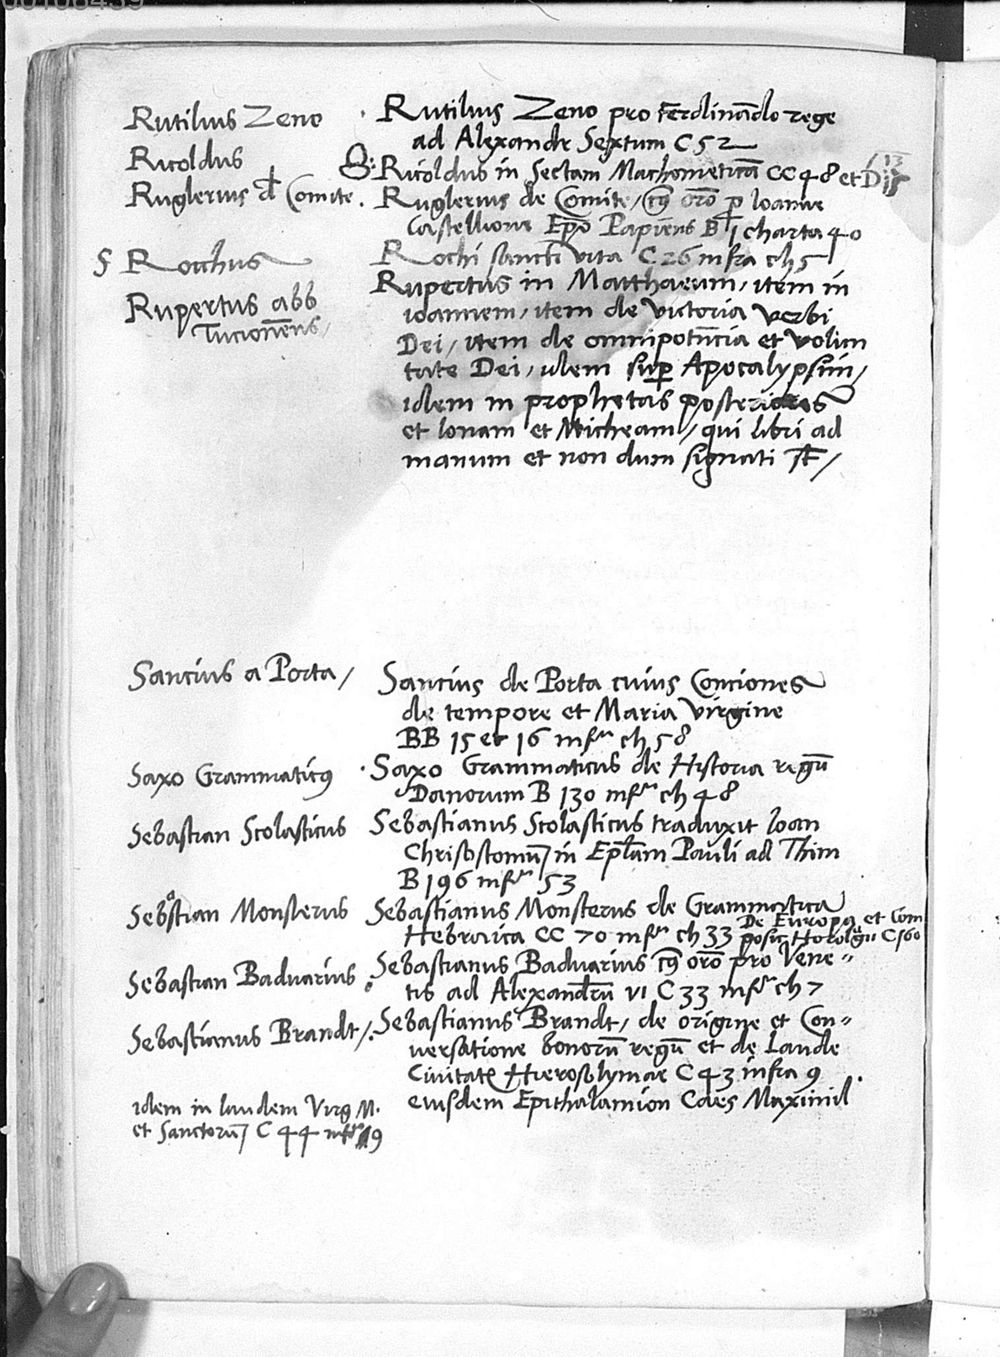 00106459
Rutilius Zeno
Rutilius Zeno pro Ferdinādo rege
ad Alexandr Sextum C 52
Ricoldus
Ricoldus in Sectam Machometicā CC 48 et D 15
13
Ruglerius d Comite.
Ruglerius de Comite, cuiꝰ orō p Ioanne
Castellione Epō Papiens B 1 charta 40
§ Rocchus
Rochi sancti vita C 26 infra ch 5
Rupertus abb
Tuicionens,
Rupertus in Matthaeum, item in
ioannem, item de victoria verbi
Dei, item de omnipotn̄cia et volun
tate Dei, idem sup Apocalypsim,
idem in prophetas posteriores
et Ionam et Micheam, qui libri ad
manum et non dum signati st,
Sancius a Porta,
Sancius de Porta cuius Conciones
de tempore et Maria Virgine
BB 15 et 16 infra ch 58
Saxo Grammaticꝰ
Saxo Grammaticus de Historia regū
Danorum B 130 infra ch 48
Sebastian Scolasticus
Sebastianus Scolasticus traduxit Ioan
Chrisostomū in Eplam Pauli ad Thim
B 196 infra 53
Sebastian Monsterus
Sebastianus Monsterus de Grammatica
Hebraica CC 70 infra ch 33
De Europa et Com
posic Horologiū C 160
Sebastian Baduarius
Sebastianus Baduarius cuiꝰ orō pro Vene=
tis ad Alexandrū VI C 33 infra ch 7
Sebastianus Brandt,
Sebastianus Brandt, de origine et Con=
versatione bonorū regū et de Laude
Civitatis Hierosolymae C 43 infra 9
eiusdem Epithalamion Caes Maximil
idem in laudem Virg M.
et Sanctorū C 44 infra 19